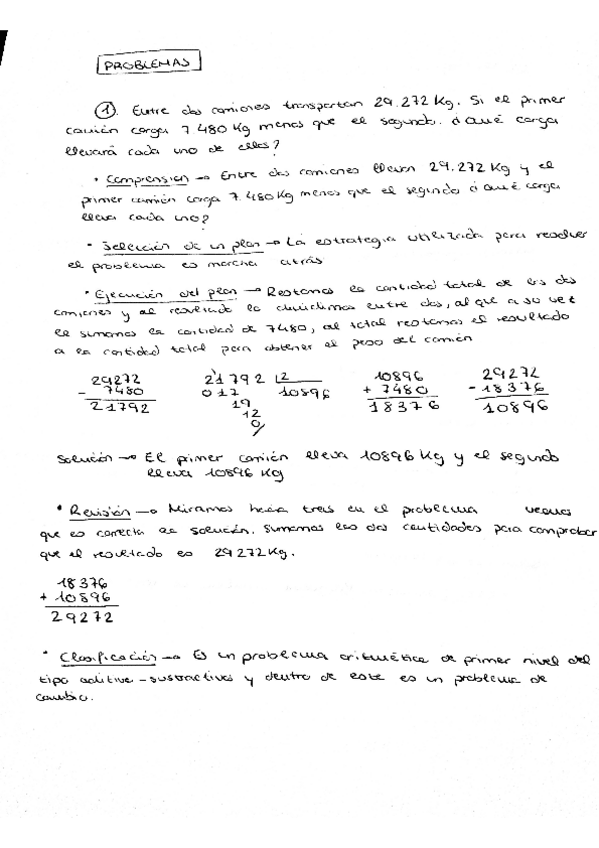 PROBLEMAS
①. Entre dos camiones transportan 29.272 Kg. Si el primer
camión carga 7.480 Kg menos que el segundo. ¿Qué carga
llevará cada uno de ellos?
• Comprensión → Entre dos camiones llevan 29.272 Kg y el
primer camión carga 7.480 Kg menos que el segundo ¿Qué carga
lleva cada uno?
• Selección de un plan → La estrategia utilizada para resolver
el problema es marcha atrás
• Ejecución del plan → Restamos la cantidad total de los dos
camiones y al resultado lo dividimos entre dos, al que a su vez
le sumamos la cantidad de 7480, al total restamos el resultado
a la cantidad total para obtener el peso del camión
29272 21792 2 10896 29272
- 7480 017 10896 + 7480 - 18376
21792 19 18376 10896
12
0
Solución → El primer camión lleva 10896 Kg y el segundo
lleva 10896 Kg
• Revisión → Miramos hacia tras en el problema vemos
que es correcta la solución. Sumamos las dos cantidades para comprobar
que el resultado es 29272 Kg.
18376
+ 10896
29272
• Clasificación → Es un problema aritmético de primer nivel del
tipo aditivo - sustractivos y dentro de este es un problema de
cambio.